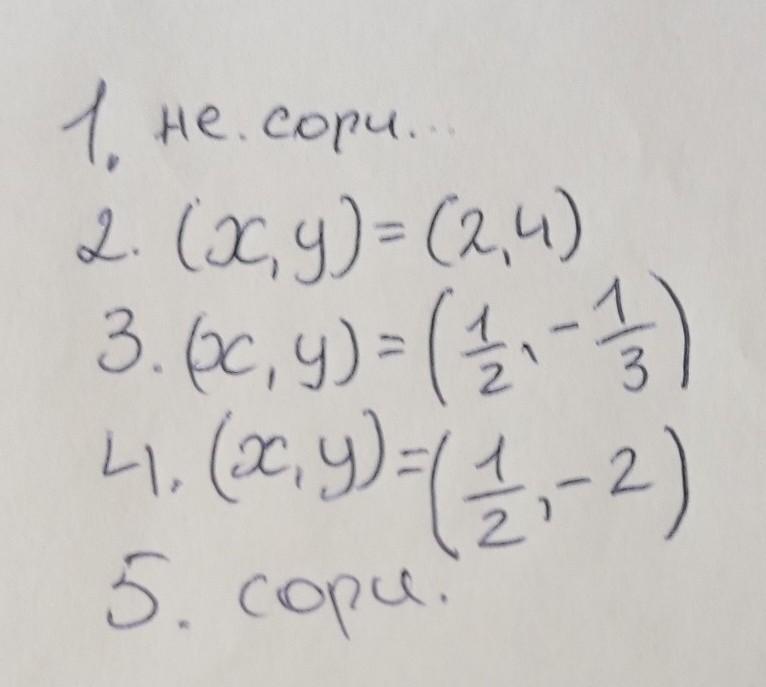 1. не. сори...
2. (x, y) = (2, 4)
3. (x, y) = (1/2, -1/3)
4. (x, y) = (1/2, -2)
5. сори.